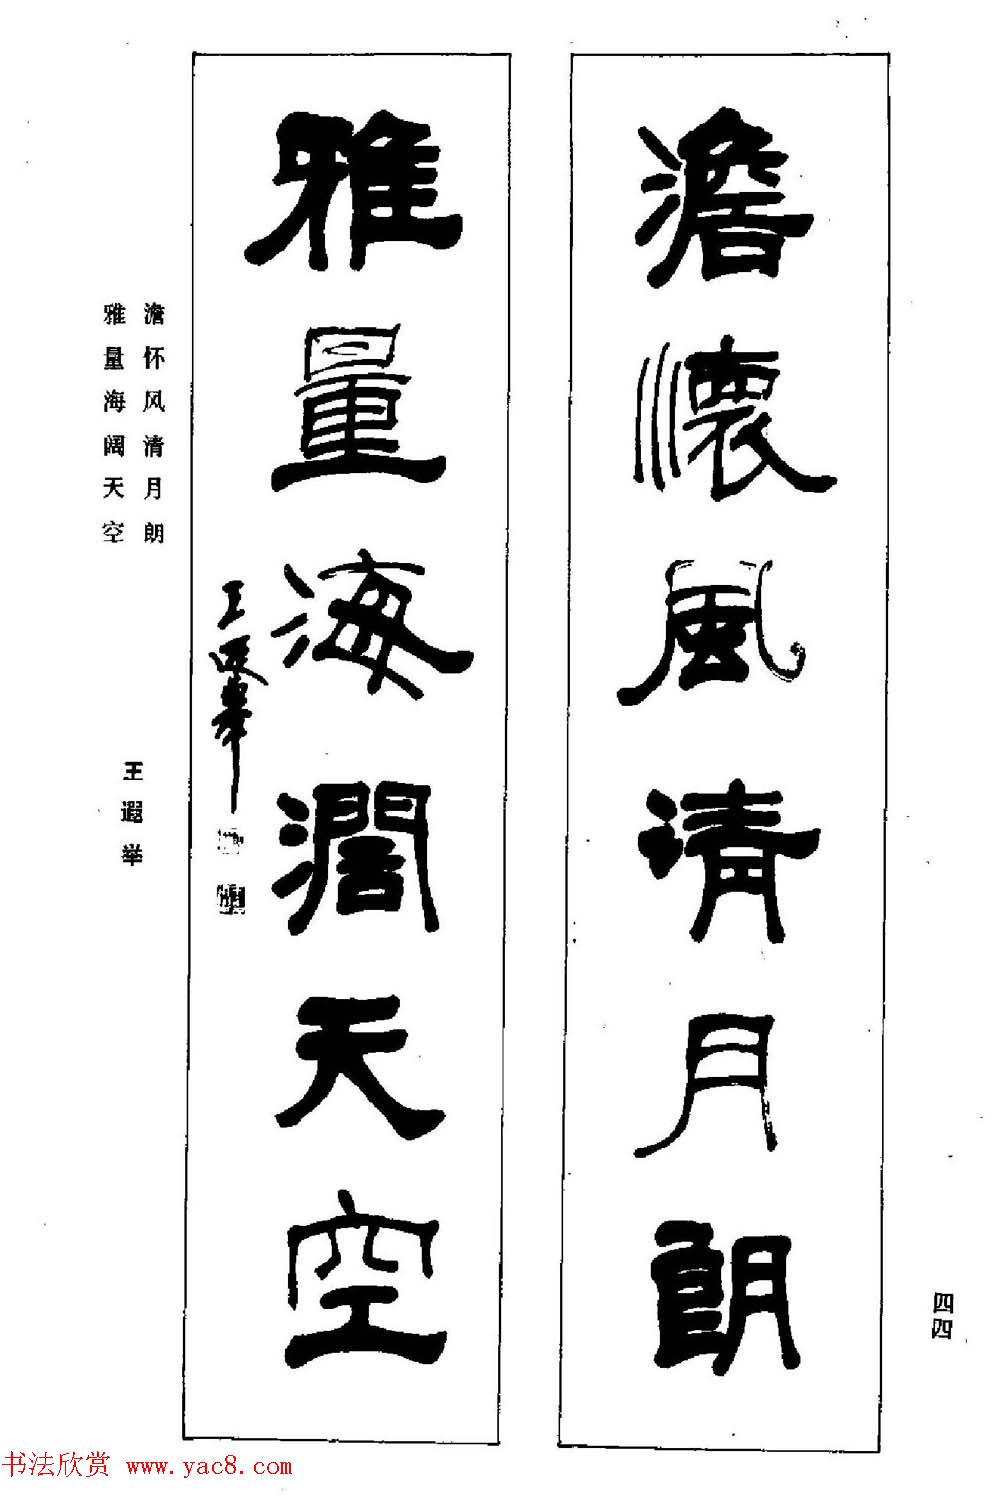 澹懷風清月朗
雅量海濶天空
王遐舉
澹怀风清月朗
雅量海阔天空
王遐举
四四
书法欣赏 www.yac8.com